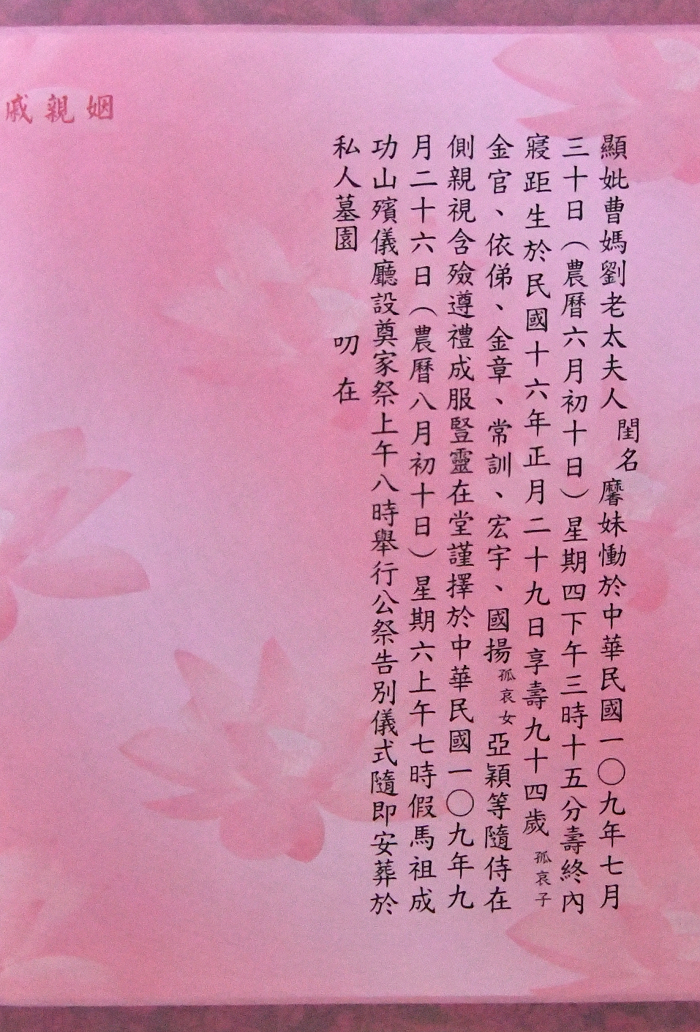 顯妣曹媽劉老太夫人 閨名 𪎭妹慟於中華民國一〇九年七月
三十日（農曆六月初十日）星期四下午三時十五分壽終內
寢距生於民國十六年正月二十九日享壽九十四歲 孤哀子
金官、依俤、金章、常訓、宏宇、國揚 孤哀女 亞穎等隨侍在
側親視含殮遵禮成服豎靈在堂謹擇於中華民國一〇九年九
月二十六日（農曆八月初十日）星期六上午七時假馬祖成
功山殯儀廳設奠家祭上午八時舉行公祭告別儀式隨即安葬於
私人墓園 叨在
姻親戚